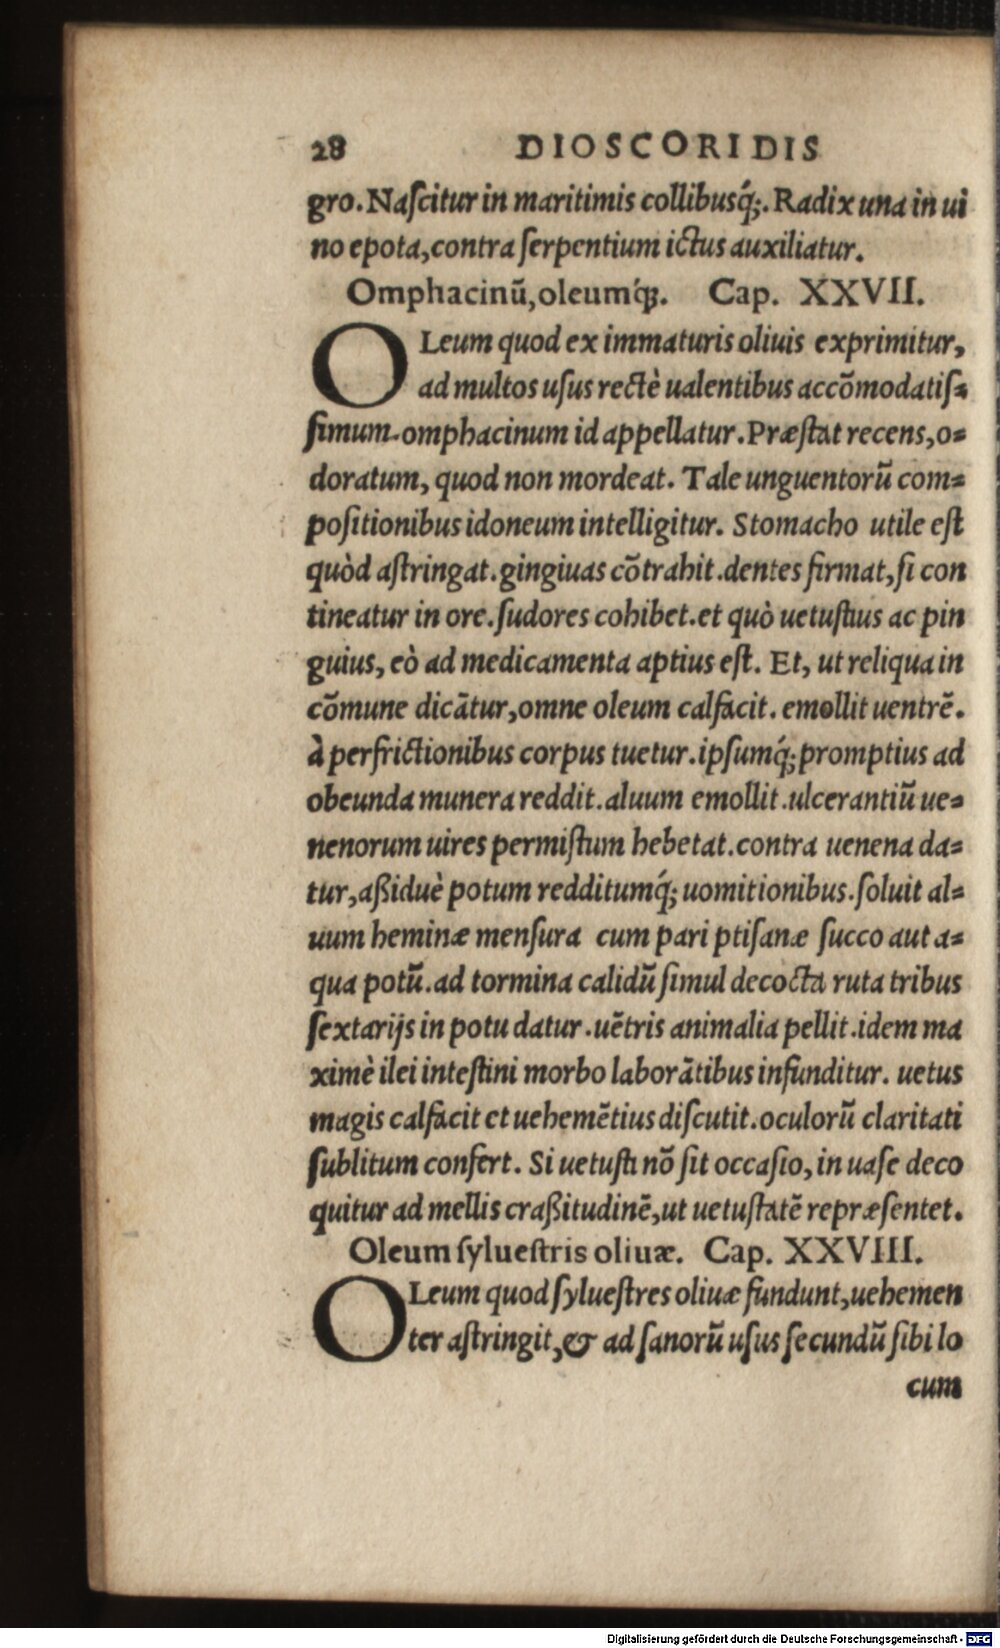 28 DIOSCORIDIS
gro. Naſcitur in maritimis collibusq́;. Radix una in ui
no epota, contra ſerpentium ictus auxiliatur.
Omphacinũ, oleumq́;. Cap. XXVII.
OLeum quod ex immaturis oliuis exprimitur,
ad multos uſus rectè ualentibus accõmodatiſ⸗
ſimum. omphacinum id appellatur. Præſtat recens, o⸗
doratum, quod non mordeat. Tale unguentorũ com⸗
poſitionibus idoneum intelligitur. Stomacho utile eſt
quòd aſtringat. gingiuas cõtrahit. dentes firmat, ſi con
tineatur in ore. ſudores cohibet. et quò uetuſtius ac pin
guius, eò ad medicamenta aptius eſt. Et, ut reliqua in
cõmune dicãtur, omne oleum calfacit. emollit uentrẽ.
à perfrictionibus corpus tuetur. ipſumq́; promptius ad
obeunda munera reddit. aluum emollit. ulcerantiũ ue⸗
nenorum uires permiſtum hebetat. contra uenena da⸗
tur, aßiduè potum redditumq́; uomitionibus. ſoluit al⸗
uum heminæ menſura cum pari ptiſanæ ſucco aut a⸗
qua potũ. ad tormina calidũ ſimul decocta ruta tribus
ſextarijs in potu datur. uẽtris animalia pellit. idem ma
ximè ilei inteſtini morbo laborãtibus infunditur. uetus
magis calfacit et uehemẽtius diſcutit. oculorũ claritati
ſublitum confert. Si uetuſti nõ ſit occaſio, in uaſe deco
quitur ad mellis craßitudinẽ, ut uetuſtatẽ repræſentet.
Oleum ſylueſtris oliuæ. Cap. XXVIII.
OLeum quod ſylueſtres oliuæ fundunt, uehemen
ter aſtringit, & ad ſanorũ uſus ſecundũ ſibi lo
cum
Digitalisierung gefördert durch die Deutsche Forschungsgemeinschaft - DFG